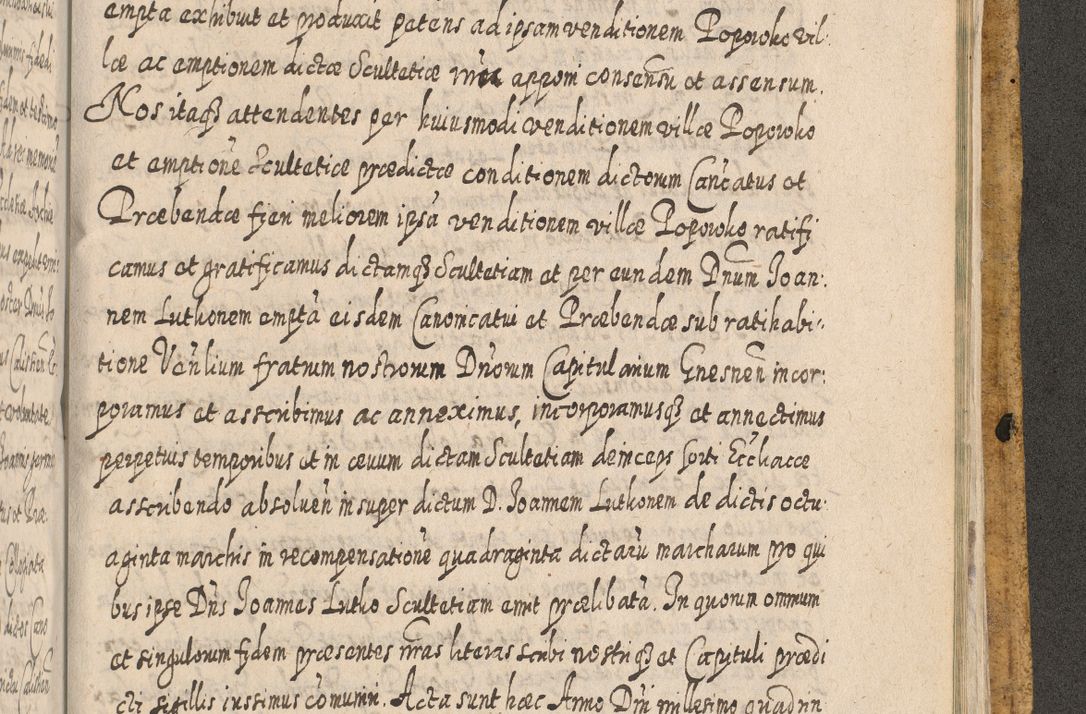 empta exhibuit et produxit petens ad ipsam venditionem Poporoko vil-
læ ac emptionem dictæ Scultetiæ apponi consensũ et assensum.
Nos itaq3 attendentes per huiusmodi venditionem villæ Poporoko
et emptiōne Scultetiæ prædictæ conditionem dictorum Cancatus et
Præbendæ fieri meliorem ipsā venditionem villæ Poporoko ratifi
camus et gratificamus dictamq3 Scultetiam et per eundem Dnum Joan:
nem Lutkonem emptā eisdem Canonicatui et Præbendæ sub ratihabi-
tione Vēnlium fratrum nostrorum Dnorum Capitularium Gnesnen̄ incor:
poramus et asscribimus ac anneximus, incorporamusq3 et annectimus
perpetuis temporibus et in ævum dictam Scultetiam deinceps sorti Eccliæ
asscribendo absolven̄ insuper dictum D. Joannem Lutkonem de dictis octu
aginta marchis in recompensatiōne quadraginta dictarū marcharum pro qui
bus ipse Dns Joannes Lutko Scultetiam emit prælibatā. In quorum omnium
et singulorum fidem præsentes nr̄as literas scribi nostriq3 et Capituli prædi
cti sigillis iussimus cōmuniri. Acta sunt hæc Anno Dni millesimo quadrin